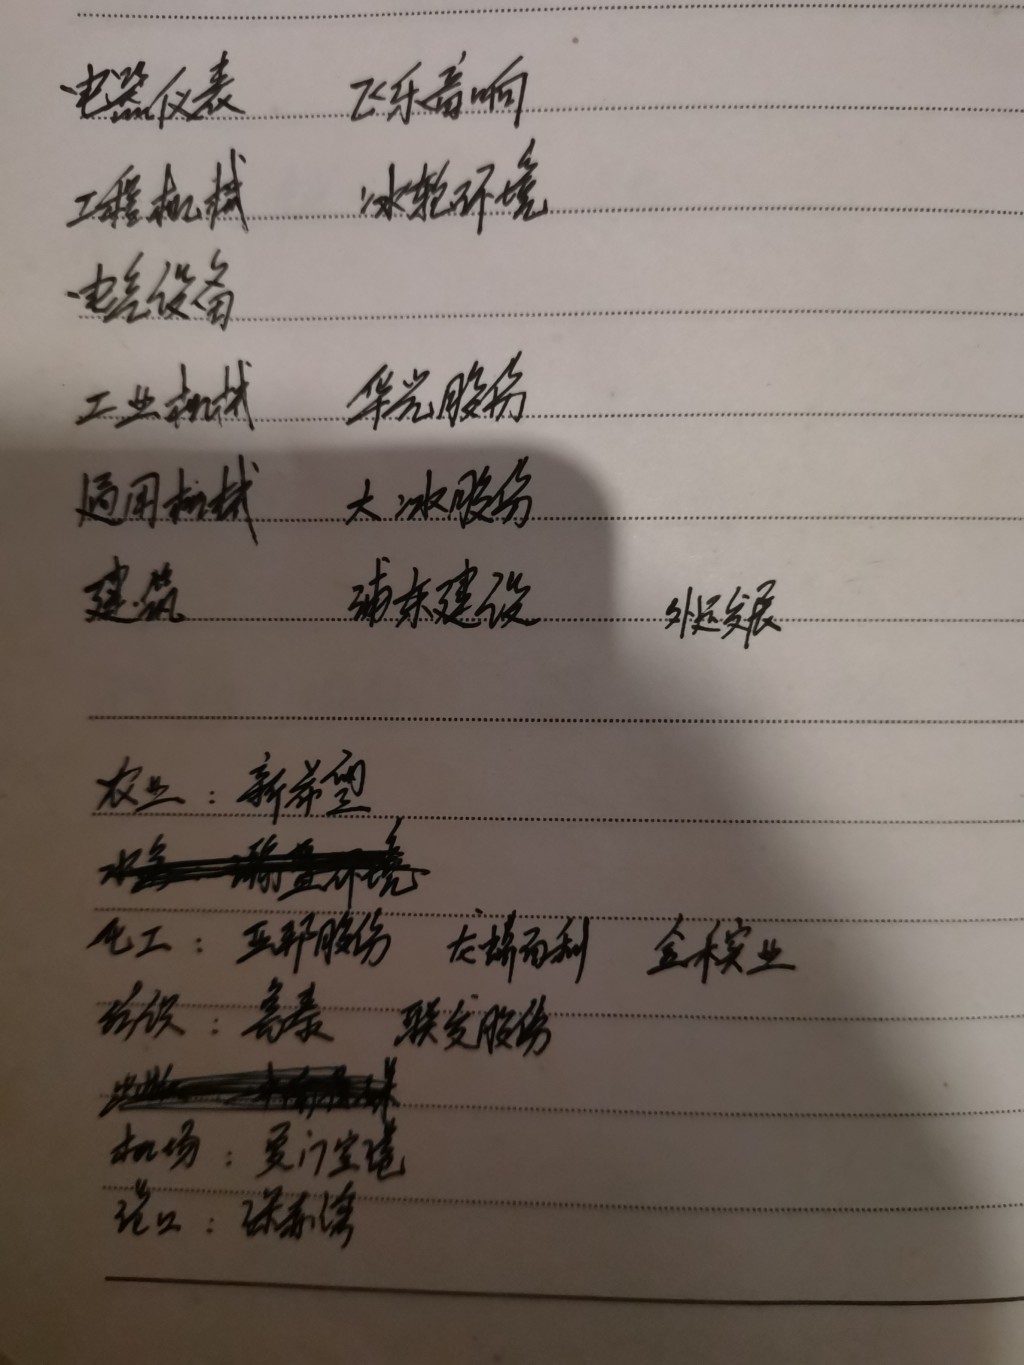 电器仪表 飞乐音响
工程机械 冰轮环境
电气设备
工业机械 华光股份
通用机械 大冰股份
建筑 浦东建设 外运发展
农业：新希望
化工：亚邦股份 百利 金禾实业
纺织：鲁泰 联发股份
机场：厦门空港
港口：深赤湾